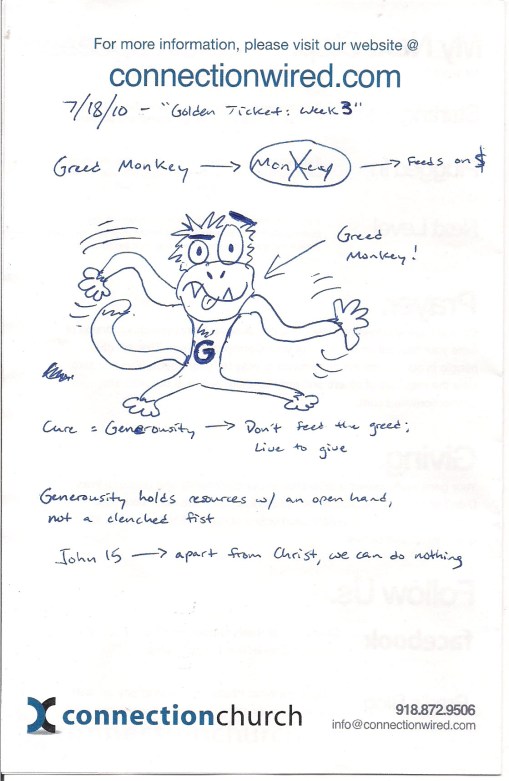 For more information, please visit our website @
connectionwired.com
7/18/10 - "Golden Ticket: Week 3"
Greed Monkey → Monkey → Feeds on $
Greed
Monkey!
G
Cure = Generousity → Don't feed the greed;
Live to give
Generousity holds resources w/ an open hand,
not a clenched fist
John 15 → apart from Christ, we can do nothing
connectionchurch
918.872.9506
info@connectionwired.com